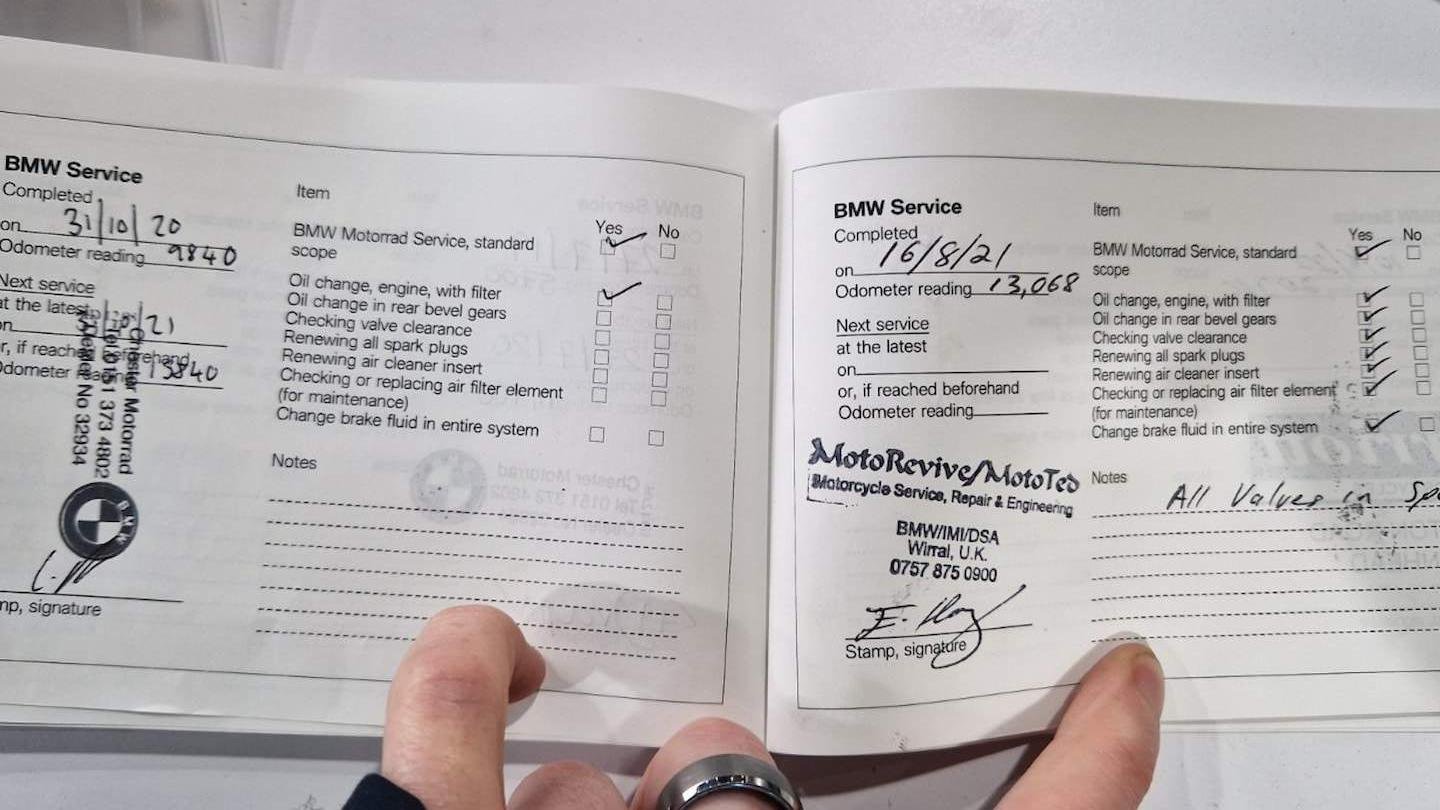 BMW Service
Completed
on 31/10/20
Odometer reading 9840
Next service
at the latest
on /10/21
or, if reached beforehand
Odometer reading 13840
Chester Motorrad
Tel 0151 373 4802
No 32934
BMW
stamp, signature
Item
Yes No
BMW Motorrad Service, standard
scope
Oil change, engine, with filter
Oil change in rear bevel gears
Checking valve clearance
Renewing all spark plugs
Renewing air cleaner insert
Checking or replacing air filter element
(for maintenance)
Change brake fluid in entire system
Notes
BMW Service
Completed
on 16/8/21
Odometer reading 13,068
Next service
at the latest
on
or, if reached beforehand
Odometer reading
MotoRevive/MotoTed
Motorcycle Service, Repair & Engineering
BMW/IMI/DSA
Wirral, U.K.
0757 875 0900
Stamp, signature
Item
Yes No
BMW Motorrad Service, standard
scope
Oil change, engine, with filter
Oil change in rear bevel gears
Checking valve clearance
Renewing all spark plugs
Renewing air cleaner insert
Checking or replacing air filter element
(for maintenance)
Change brake fluid in entire system
Notes
All Valves in